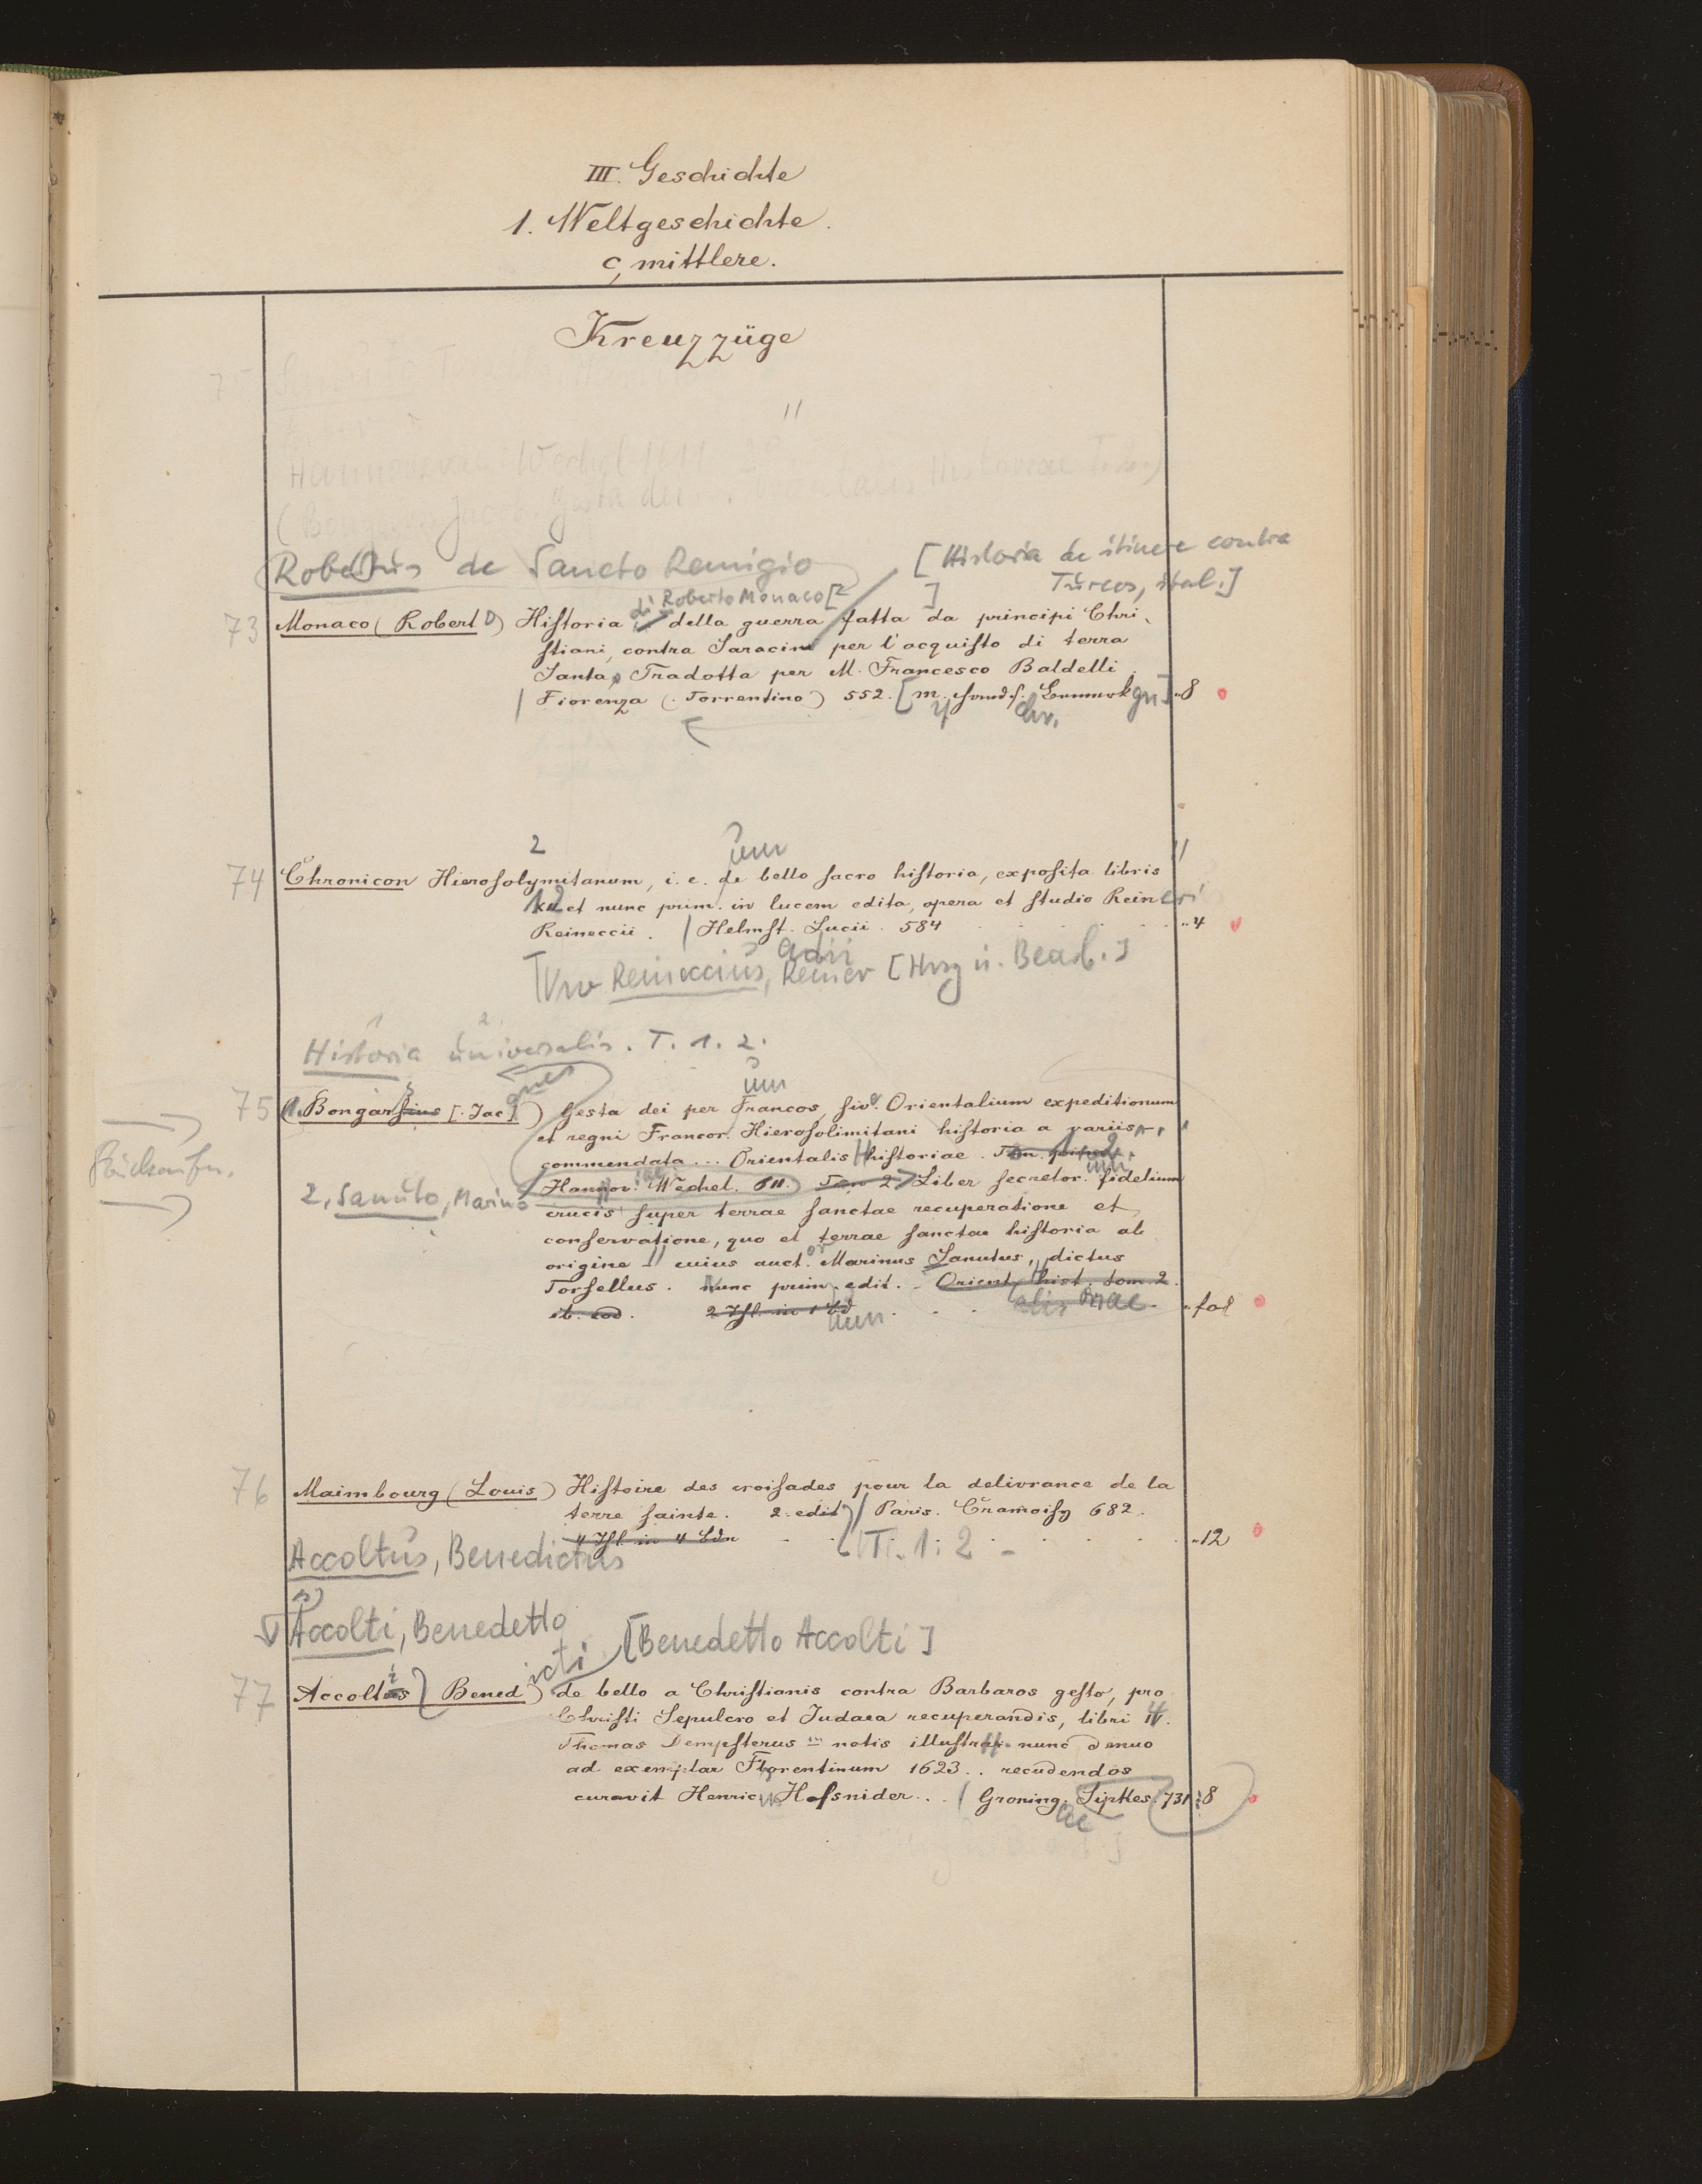 III. Geschichte
1. Weltgeschichte.
c, mittlere.
Kreuzzüge
Robertus de Sancto Remigio
[Historia de itinere contra
Turcos, ital.]
di Roberto Monaco [2 ]
73 Monaco (Roberto) Historia della guerra fatta da principi Chri-
stiani, contra Saracini per l'acquisto di terra
Santa, Tradotta per M. Francesco Baldelli
Fiorenza (Torrentino) 552. 8
2 um
74 Chronicon Hierosolymitanum, i. e. de bello sacro historia, exposita libris
12 et nunc prim. in lucem edita, opera et studio Reineri
Reineccii. Helmst. Lucii. 584 4
Reineccius, Reiner [Hrsg u. Bearb.]
Historia universalis. T. 1. 2.
um
75 1. Bongarsius [Jac]) Gesta dei per Francos, sive Orientalium expeditionum
et regni Francor. Hierosolimitani historia a variis
commendata ... Orientalis historiae.
Hannov. Wechel. 611. Tom 2 Liber secretor. fidelium
2, Sanuto, Marino
crucis super terrae sanctae recuperatione et
conservatione, quo et terrae sanctae historia ab
origine - cuius auct. Marinus Sanutus, dictus
Torsellus. Nunc prim. edit. - Orient. hist. tom. 2.
ib. eod. 2 Thl. in 1 Bd fol
76 Maimbourg (Louis) Histoire des croisades pour la delivrance de la
terre sainte. 2. edit / Paris. Cramoisy 682.
4 Thl. in 4 Bdn T. 1. 2 - 12
Accoltus, Benedictus
Accolti, Benedetto
[Benedetto Accolti]
icti
77 Accoltus (Bened) de bello a Christianis contra Barbaros gesto, pro
Christi Sepulcro et Judaea recuperandis, libri IV.
Thomas Dempsterus notis illustrav. nunc denuo
ad exemplar Florentinum 1623.. recudendos
curavit Henricus Hofsnider... / Groning. Sipkes. 731 8